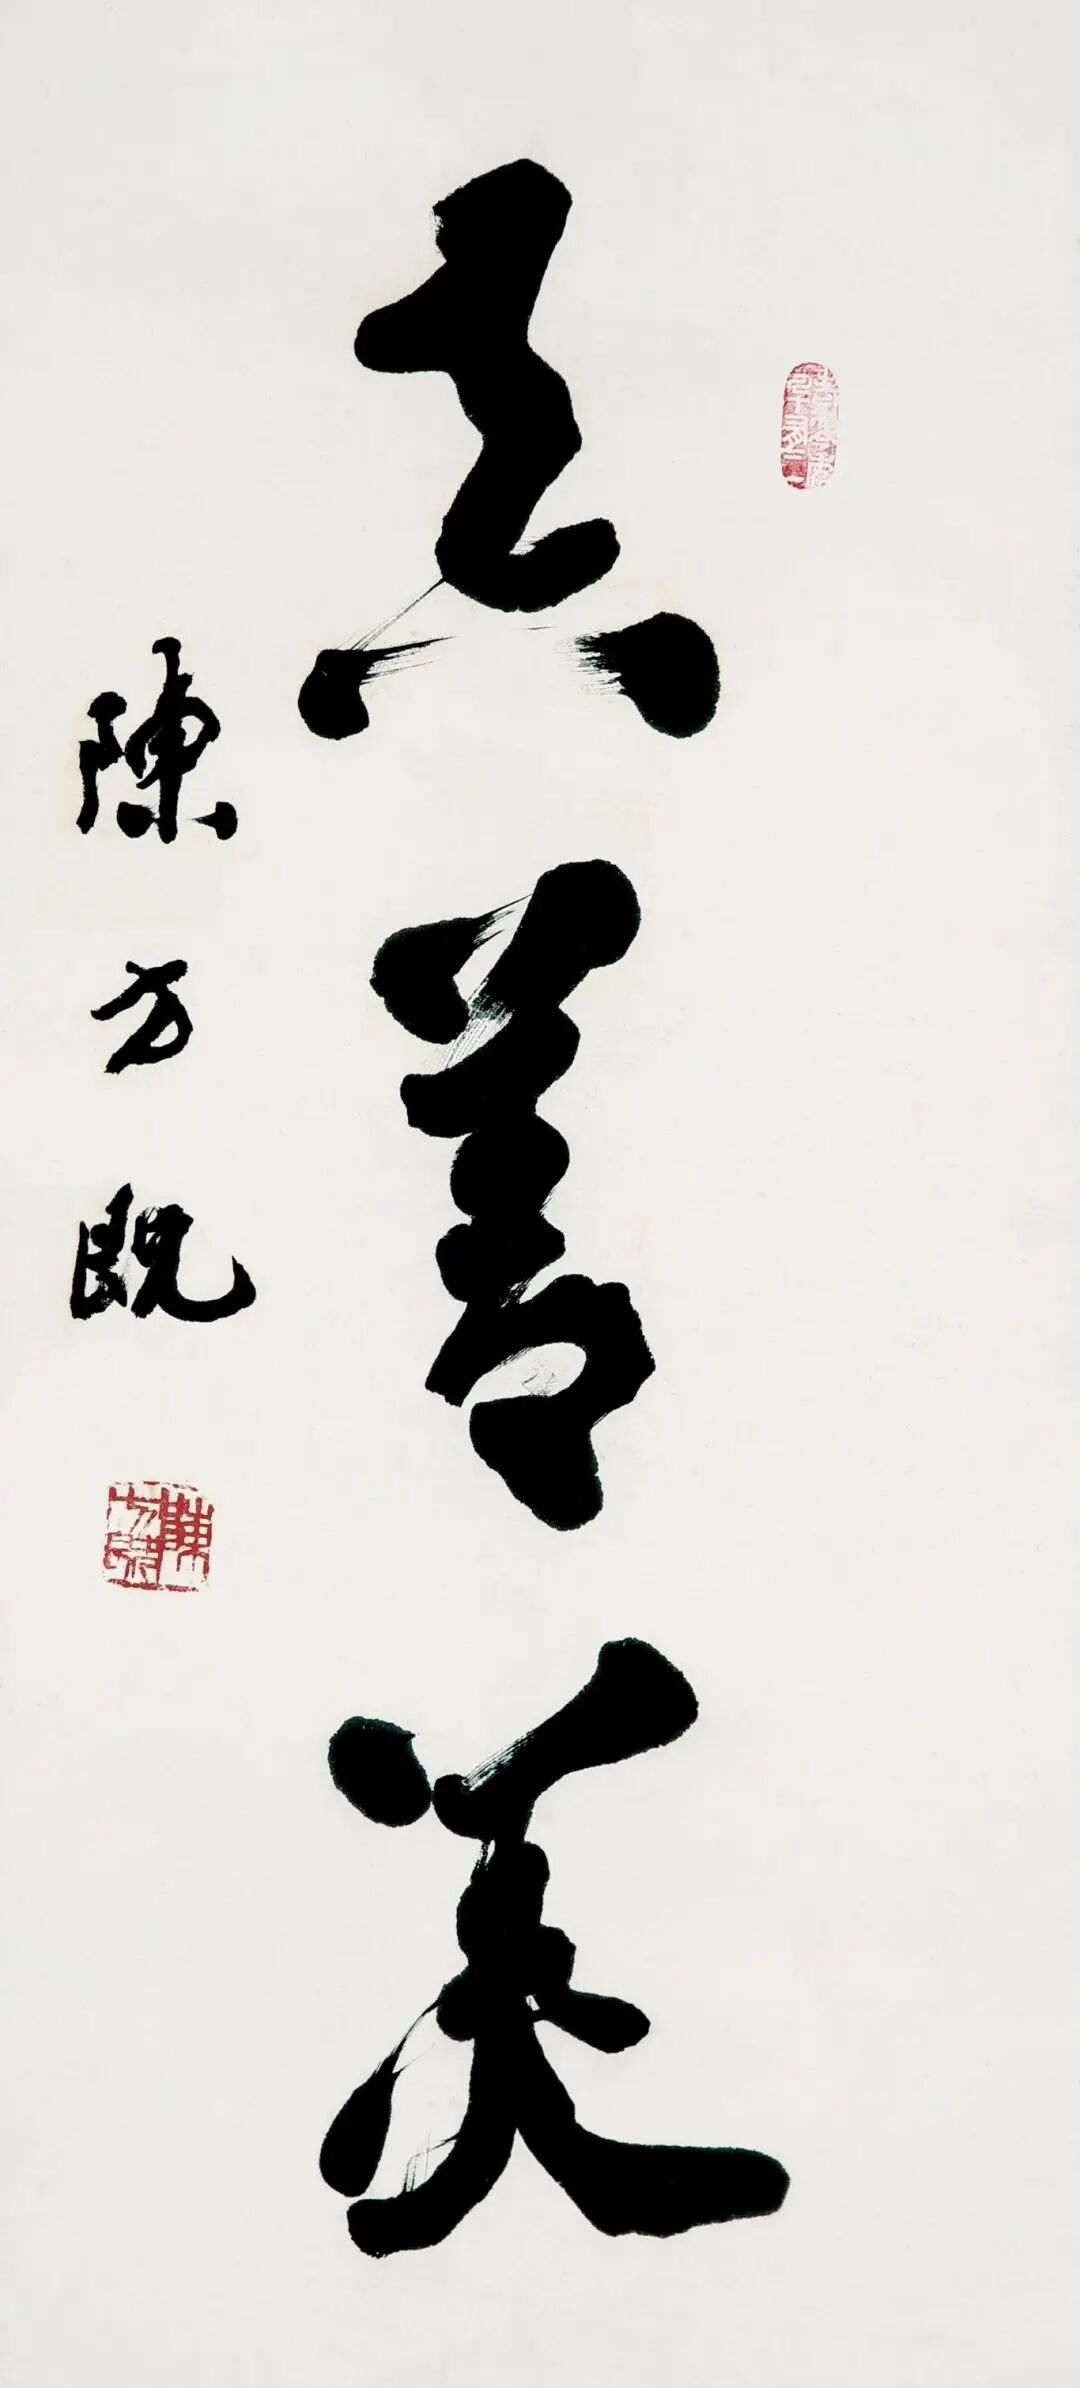 真善美
陳方既